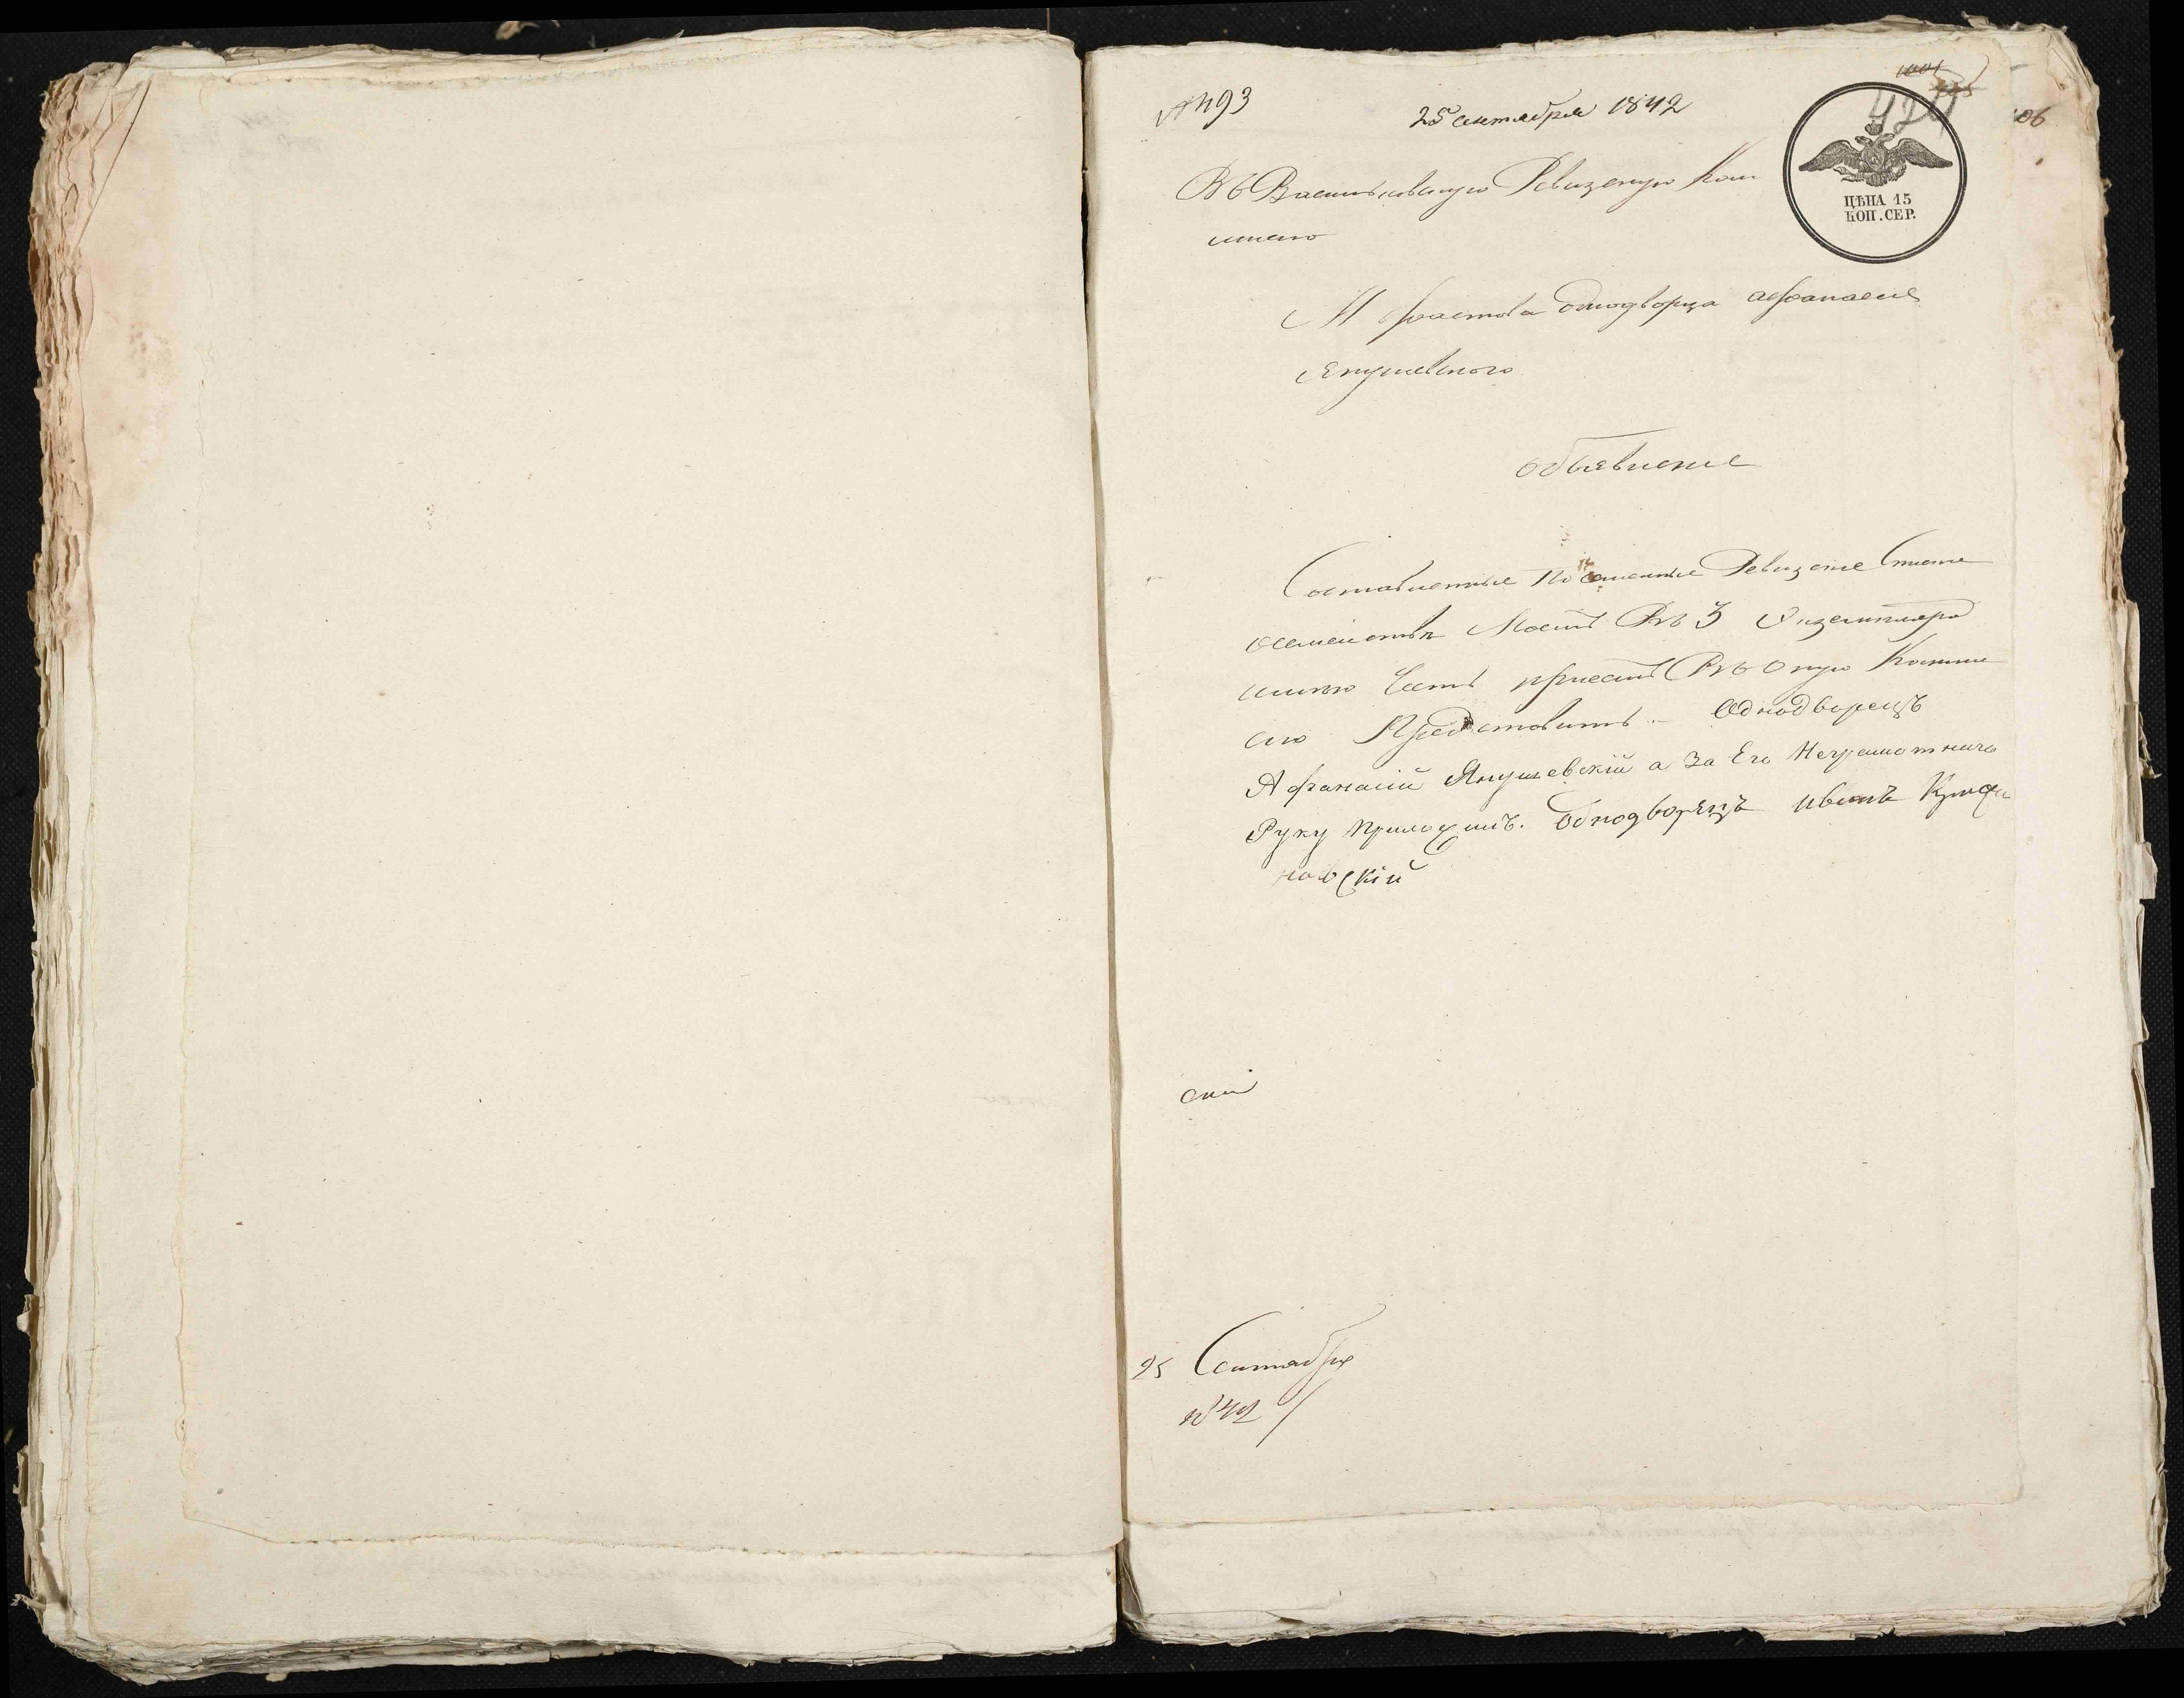 № 493
25 сентября 1842
420
106
ЦѢНА 15
КОП. СЕР.
Въ Васильковскую Ревизскую Ком
мисию
М Фастова однодворца афанасия
Янушевского
объявление
Составленные Посеменные Ревизские
семейства Моего Въ 3 Экземпляра
честь Въ Оную Комми
сию Представить – Однодворецъ
Афанасій Янушевскій а За Его Неграмотнаго
Руку приложилъ. Однодворецъ иванъ
новскій
скій
25 Сентября
1842